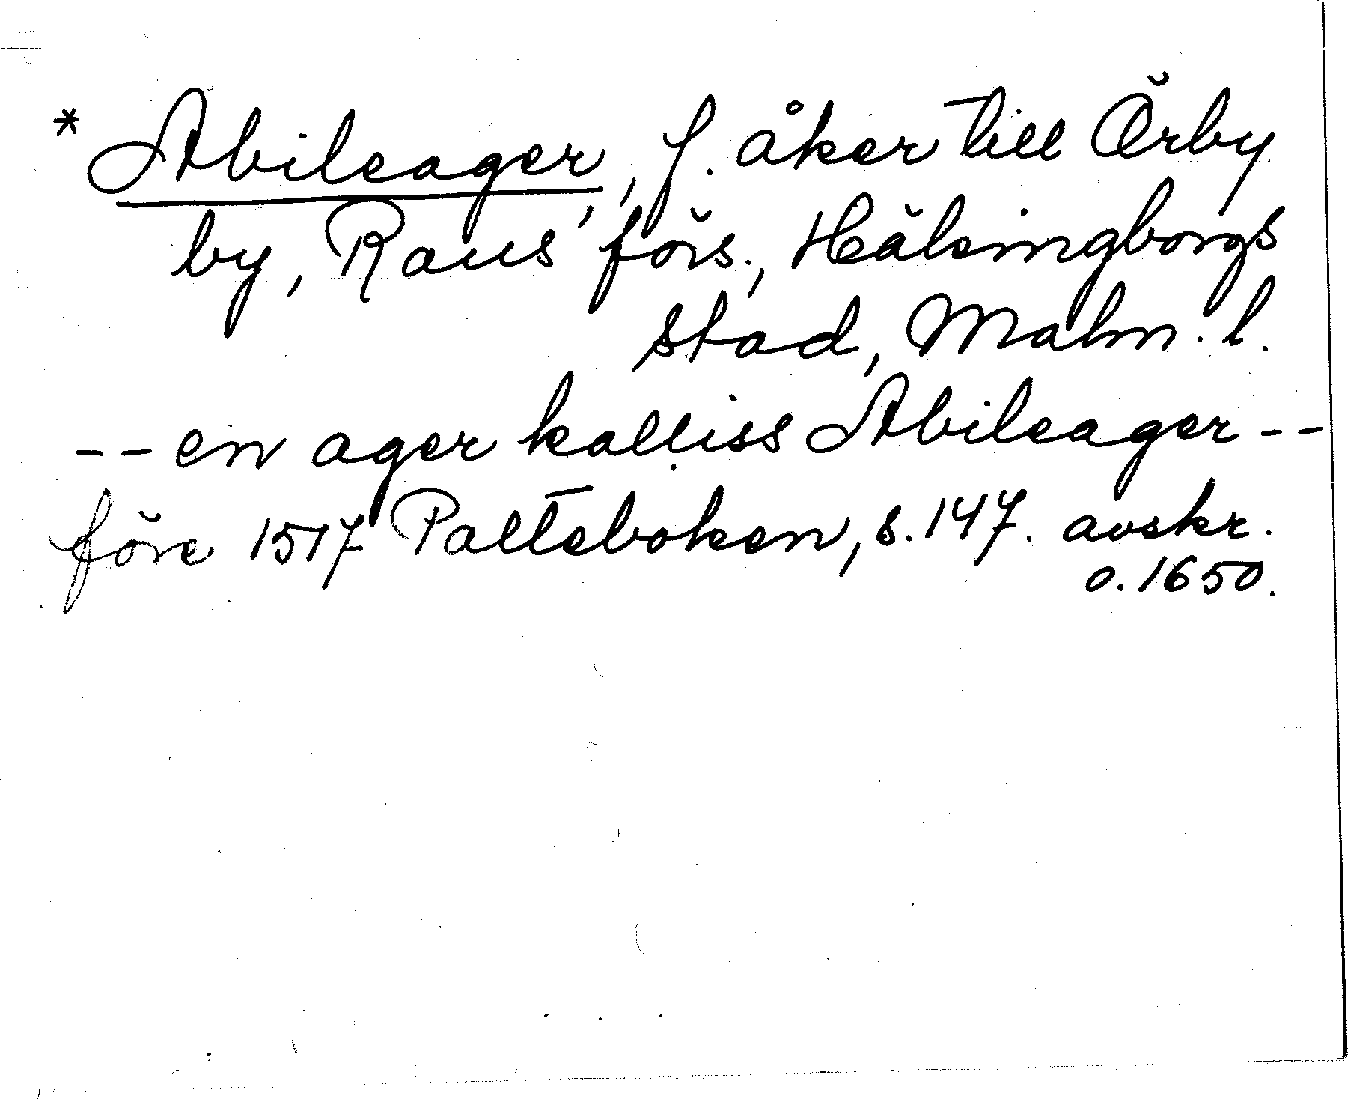 * Abileager, f. åker till Örby
by, Raus förs., Hälsingborgs
stad, Malm. l.
-- en ager kalliss Abileager --
före 1517 Palteboken, s. 147. avskr.
o. 1650.